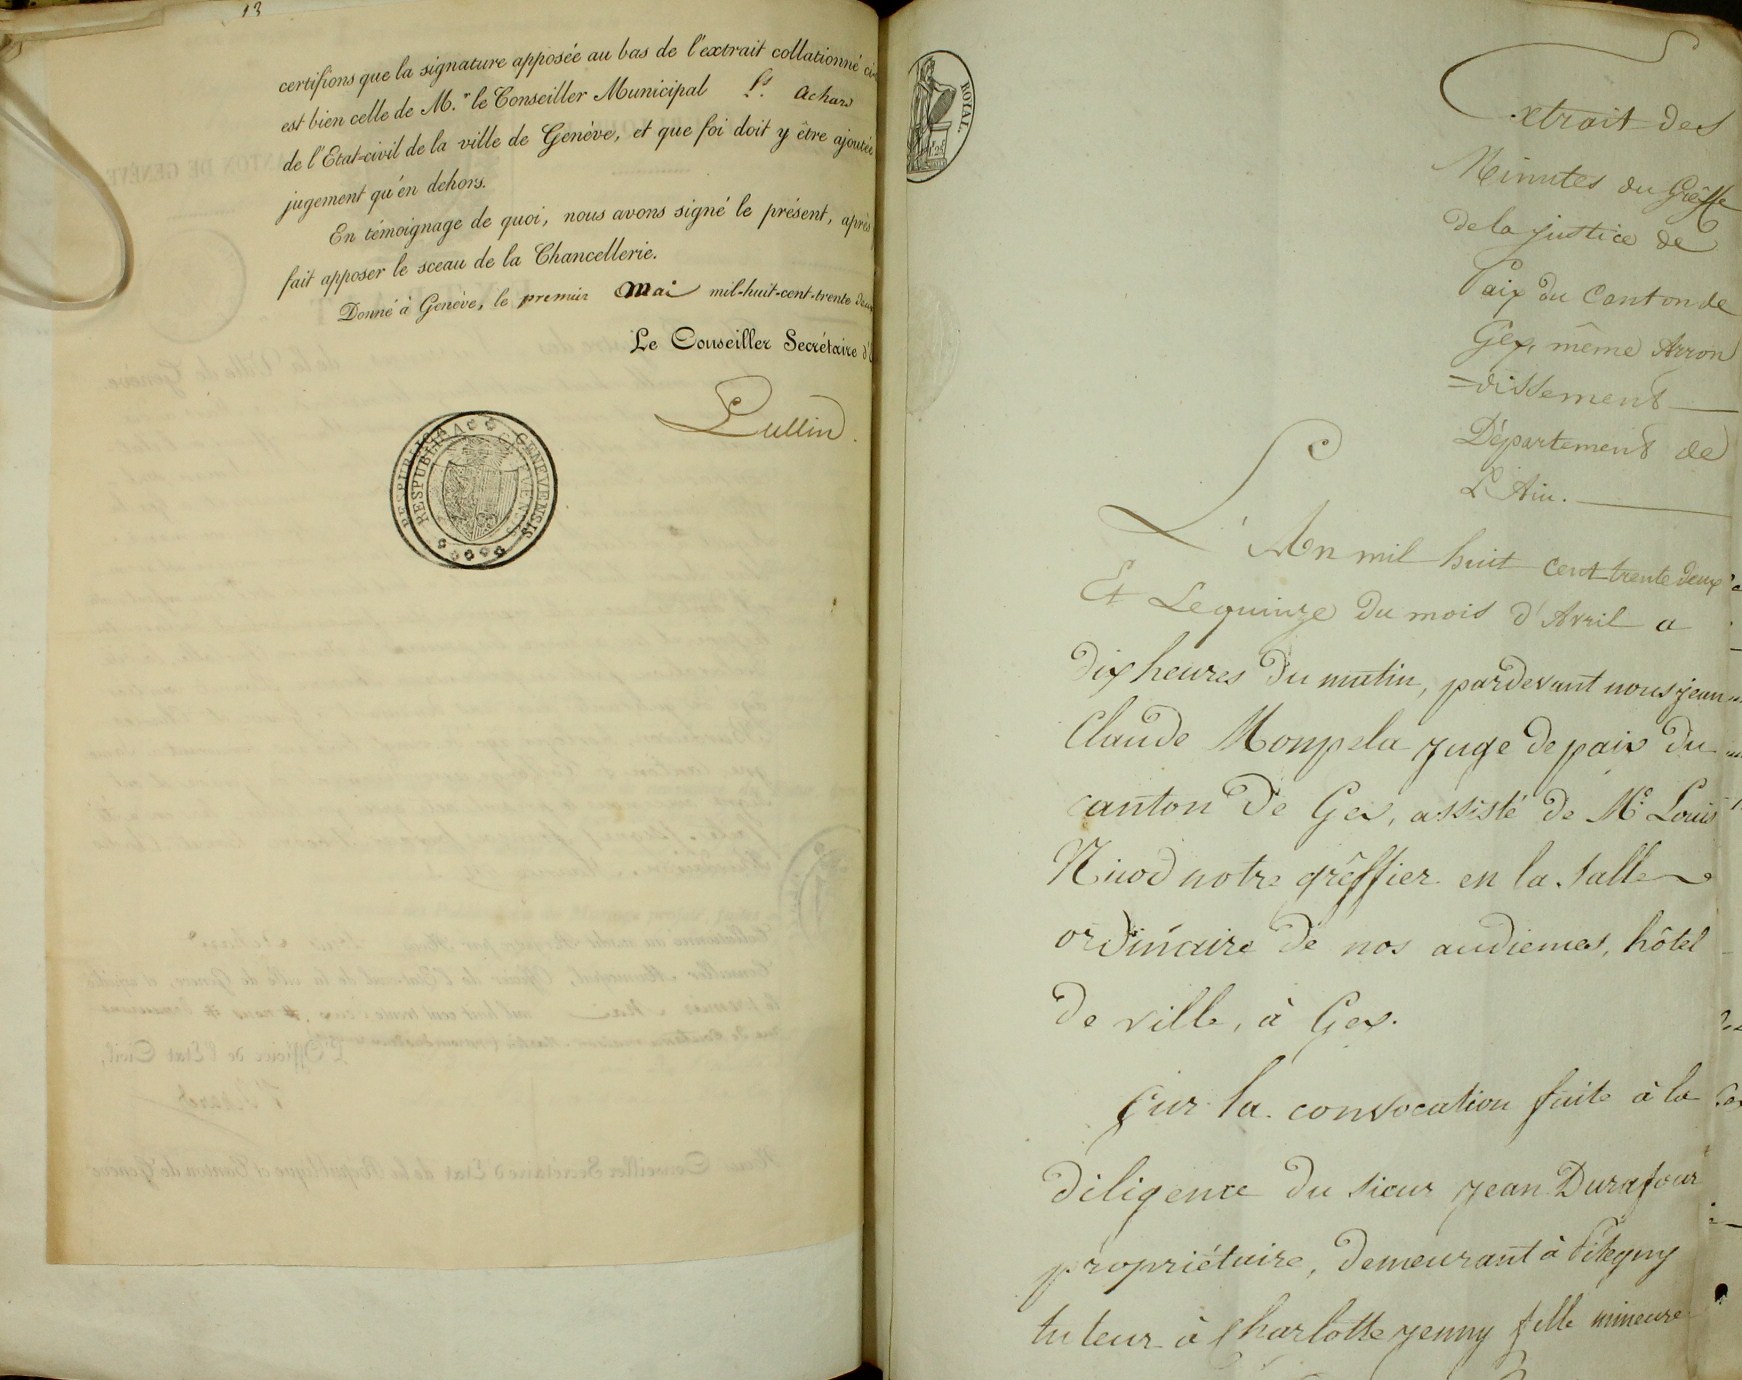 13
certifions que la signature apposée au bas de l'extrait collationné
est bien celle de M.r le Conseiller Municipal Ls. Achard
de l'Etat-civil de la ville de Genève, et que foi doit y être ajoutée
jugement qu'en dehors.
En témoignage de quoi, nous avons signé le présent, après
fait apposer le sceau de la Chancellerie.
Donné à Genève, le premier Mai mil-huit-cent-trente deux
Le Conseiller Secrétaire d'
Lullin.
RESPUBLICA GENEVENSIS
ROYAL.
Extrait des
Minutes du Grêffe
de la justice de
Paix du Canton de
Gex, même Arron
=dissement
Département de
L'Ain.
L'An mil huit cent trente deux
Et Le quinze du mois d'Avril a
dix heures du matin, pardevant nous jean
Claude Monpela juge de paix du
canton de Gex, assisté de Me. Louis
Nicod notre grêffier en la salle
ordinaire de nos audiences, hôtel
de ville, à Gex.
Sur la convocation faite à la
diligence du sieur jean Durafour
propriétaire, demeurant à Pitegny
tuteur à Charlotte jenny fille mineure